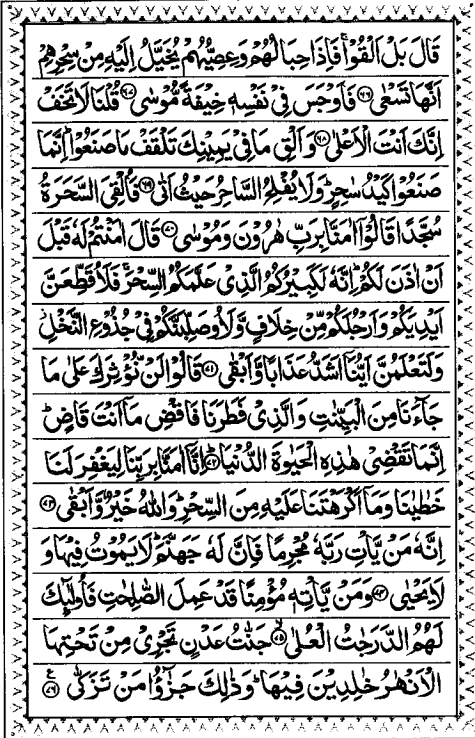 قَالَ بَلْ اَلْقُوْا ۚ فَاِذَا حِبَالُهُمْ وَعِصِيُّهُمْ يُخَيَّلُ اِلَيْهِ مِنْ سِحْرِهِمْ
اَنَّهَا تَسْعٰى ﴿۶۶﴾ فَاَوْجَسَ فِيْ نَفْسِهٖ خِيْفَةً مُّوْسٰى ﴿۶۷﴾ قُلْنَا لَا تَخَفْ
اِنَّكَ اَنْتَ الْاَعْلٰى ﴿۶۸﴾ وَاَلْقِ مَا فِيْ يَمِيْنِكَ تَلْقَفْ مَا صَنَعُوْا ؕ اِنَّمَا
صَنَعُوْا كَيْدُ سٰحِرٍ ؕ وَلَا يُفْلِحُ السَّاحِرُ حَيْثُ اَتٰى ﴿۶۹﴾ فَاُلْقِيَ السَّحَرَةُ
سُجَّدًا قَالُوْۤا اٰمَنَّا بِرَبِّ هٰرُوْنَ وَمُوْسٰى ﴿۷۰﴾ قَالَ اٰمَنْتُمْ لَهٗ قَبْلَ
اَنْ اٰذَنَ لَكُمْ ؕ اِنَّهٗ لَكَبِيْرُكُمُ الَّذِيْ عَلَّمَكُمُ السِّحْرَ ۚ فَلَاُقَطِّعَنَّ
اَيْدِيَكُمْ وَاَرْجُلَكُمْ مِّنْ خِلَافٍ وَّلَاُوصَلِّبَنَّكُمْ فِيْ جُذُوْعِ النَّخْلِ ؗ
وَلَتَعْلَمُنَّ اَيُّنَاۤ اَشَدُّ عَذَابًا وَّاَبْقٰى ﴿۷۱﴾ قَالُوْا لَنْ نُّؤْثِرَكَ عَلٰى مَا
جَآءَنَا مِنَ الْبَيِّنٰتِ وَالَّذِيْ فَطَرَنَا فَاقْضِ مَاۤ اَنْتَ قَاضٍ ؕ
اِنَّمَا تَقْضِيْ هٰذِهِ الْحَيٰوةَ الدُّنْيَا ﴿۷۲﴾ اِنَّاۤ اٰمَنَّا بِرَبِّنَا لِيَغْفِرَ لَنَا
خَطٰيٰنَا وَمَاۤ اَكْرَهْتَنَا عَلَيْهِ مِنَ السِّحْرِ ؕ وَاللّٰهُ خَيْرٌ وَّاَبْقٰى ﴿۷۳﴾
اِنَّهٗ مَنْ يَّاْتِ رَبَّهٗ مُجْرِمًا فَاِنَّ لَهٗ جَهَنَّمَ ؕ لَا يَمُوْتُ فِيْهَا وَ
لَا يَحْيٰى ﴿۷۴﴾ وَمَنْ يَّاْتِهٖ مُؤْمِنًا قَدْ عَمِلَ الصّٰلِحٰتِ فَاُولٰٓئِكَ
لَهُمُ الدَّرَجٰتُ الْعُلٰى ﴿۷۵﴾ جَنّٰتُ عَدْنٍ تَجْرِيْ مِنْ تَحْتِهَا
الْاَنْهٰرُ خٰلِدِيْنَ فِيْهَا ؕ وَذٰلِكَ جَزٰٓؤُا مَنْ تَزَكّٰى ﴿۷۶﴾ ع